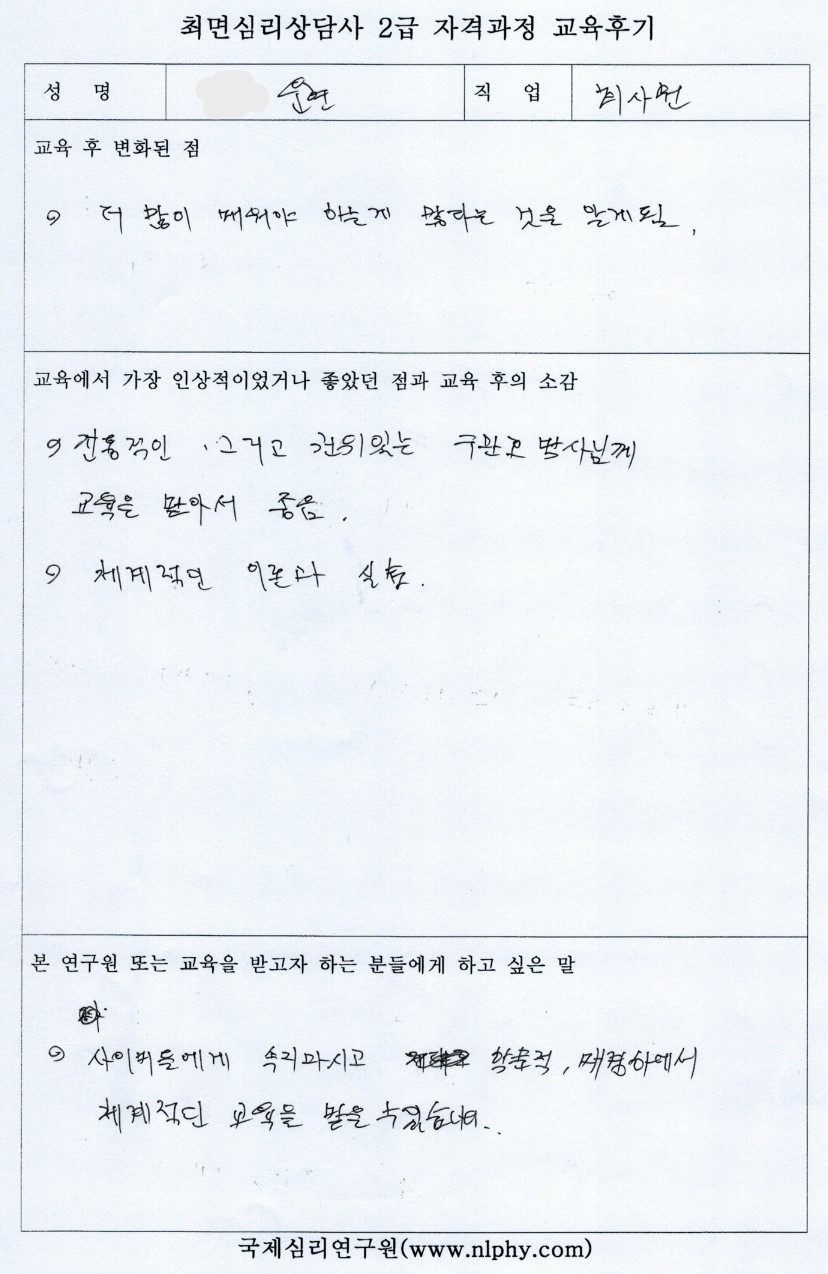 최면심리상담사 2급 자격과정 교육후기
성 명 윤연 직 업 회사원
교육 후 변화된 점
더 많이 배워야 하는게 많다는 것을 알게됨.
교육에서 가장 인상적이었거나 좋았던 점과 교육 후의 소감
전통적인 . 그리고 권위있는 구만호 박사님께
교육을 받아서 좋음.
체계적인 이론과 실습.
본 연구원 또는 교육을 받고자 하는 분들에게 하고 싶은 말
사이비들에게 속지마시고 학술적, 배경하에서
체계적인 교육을 받을 수 있습니다.
국제심리연구원(www.nlphy.com)